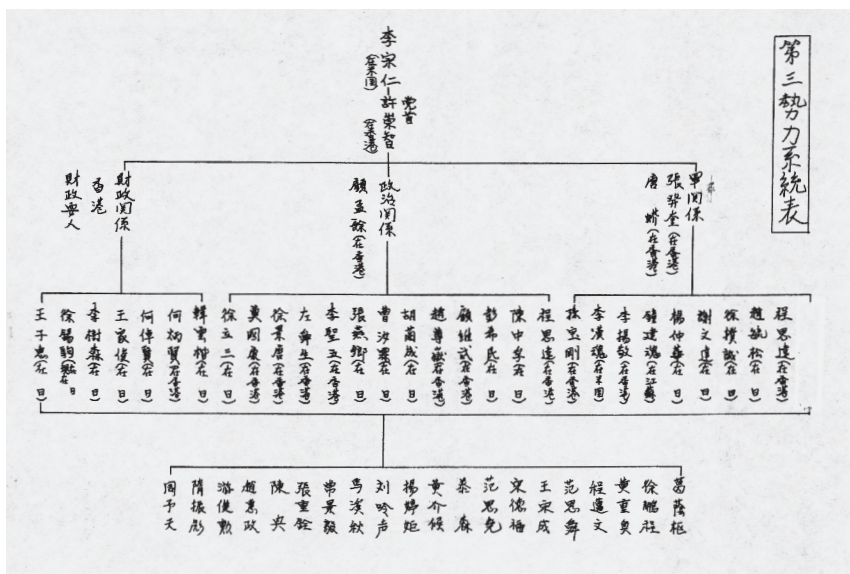 第三勢力系統表
李宗仁(在米国)
党首
許崇智(在香港)
軍関係
張発奎(在香港)
唐 蟒(在香港)
政治関係
顧孟餘(在香港)
財政関係
香港
財政要人
程思遠(在香港)
趙毓松(在 日)
徐撲誠(在 日)
謝文達(在 日)
楊仲華(在 日)
鍾建魂(在江蘇)
李揚敬(在香港)
李漢魂(在米国)
孫宝剛(在香港)
程思遠(在香港)
陳中孚(在 日)
彭希民(在 日)
顧維武(在香港)
趙尊嶽(在香港)
胡蘭成(在 日)
曹汝霖(在 日)
張燕卿(在 日)
李聖五(在香港)
左舜生(在香港)
徐景唐(在香港)
黄国康(在香港)
徐立三(在 日)
韓雲楷(在 日)
何炳賢(在香港)
何倬賢(在 日)
王家俊(在 日)
李樹森(在 日)
徐錫駒
王子惠(在 日)
葛蔭枢
徐鵬程
黄重奥
程蓬文
范思舜
王永成
宋儒福
范思免
泰 森
黄介候
楊婷姫
刘吟声
馬溪秋
常景毅
張重銓
陳 央
趙惠政
游俊勲
隋振彪
周予天